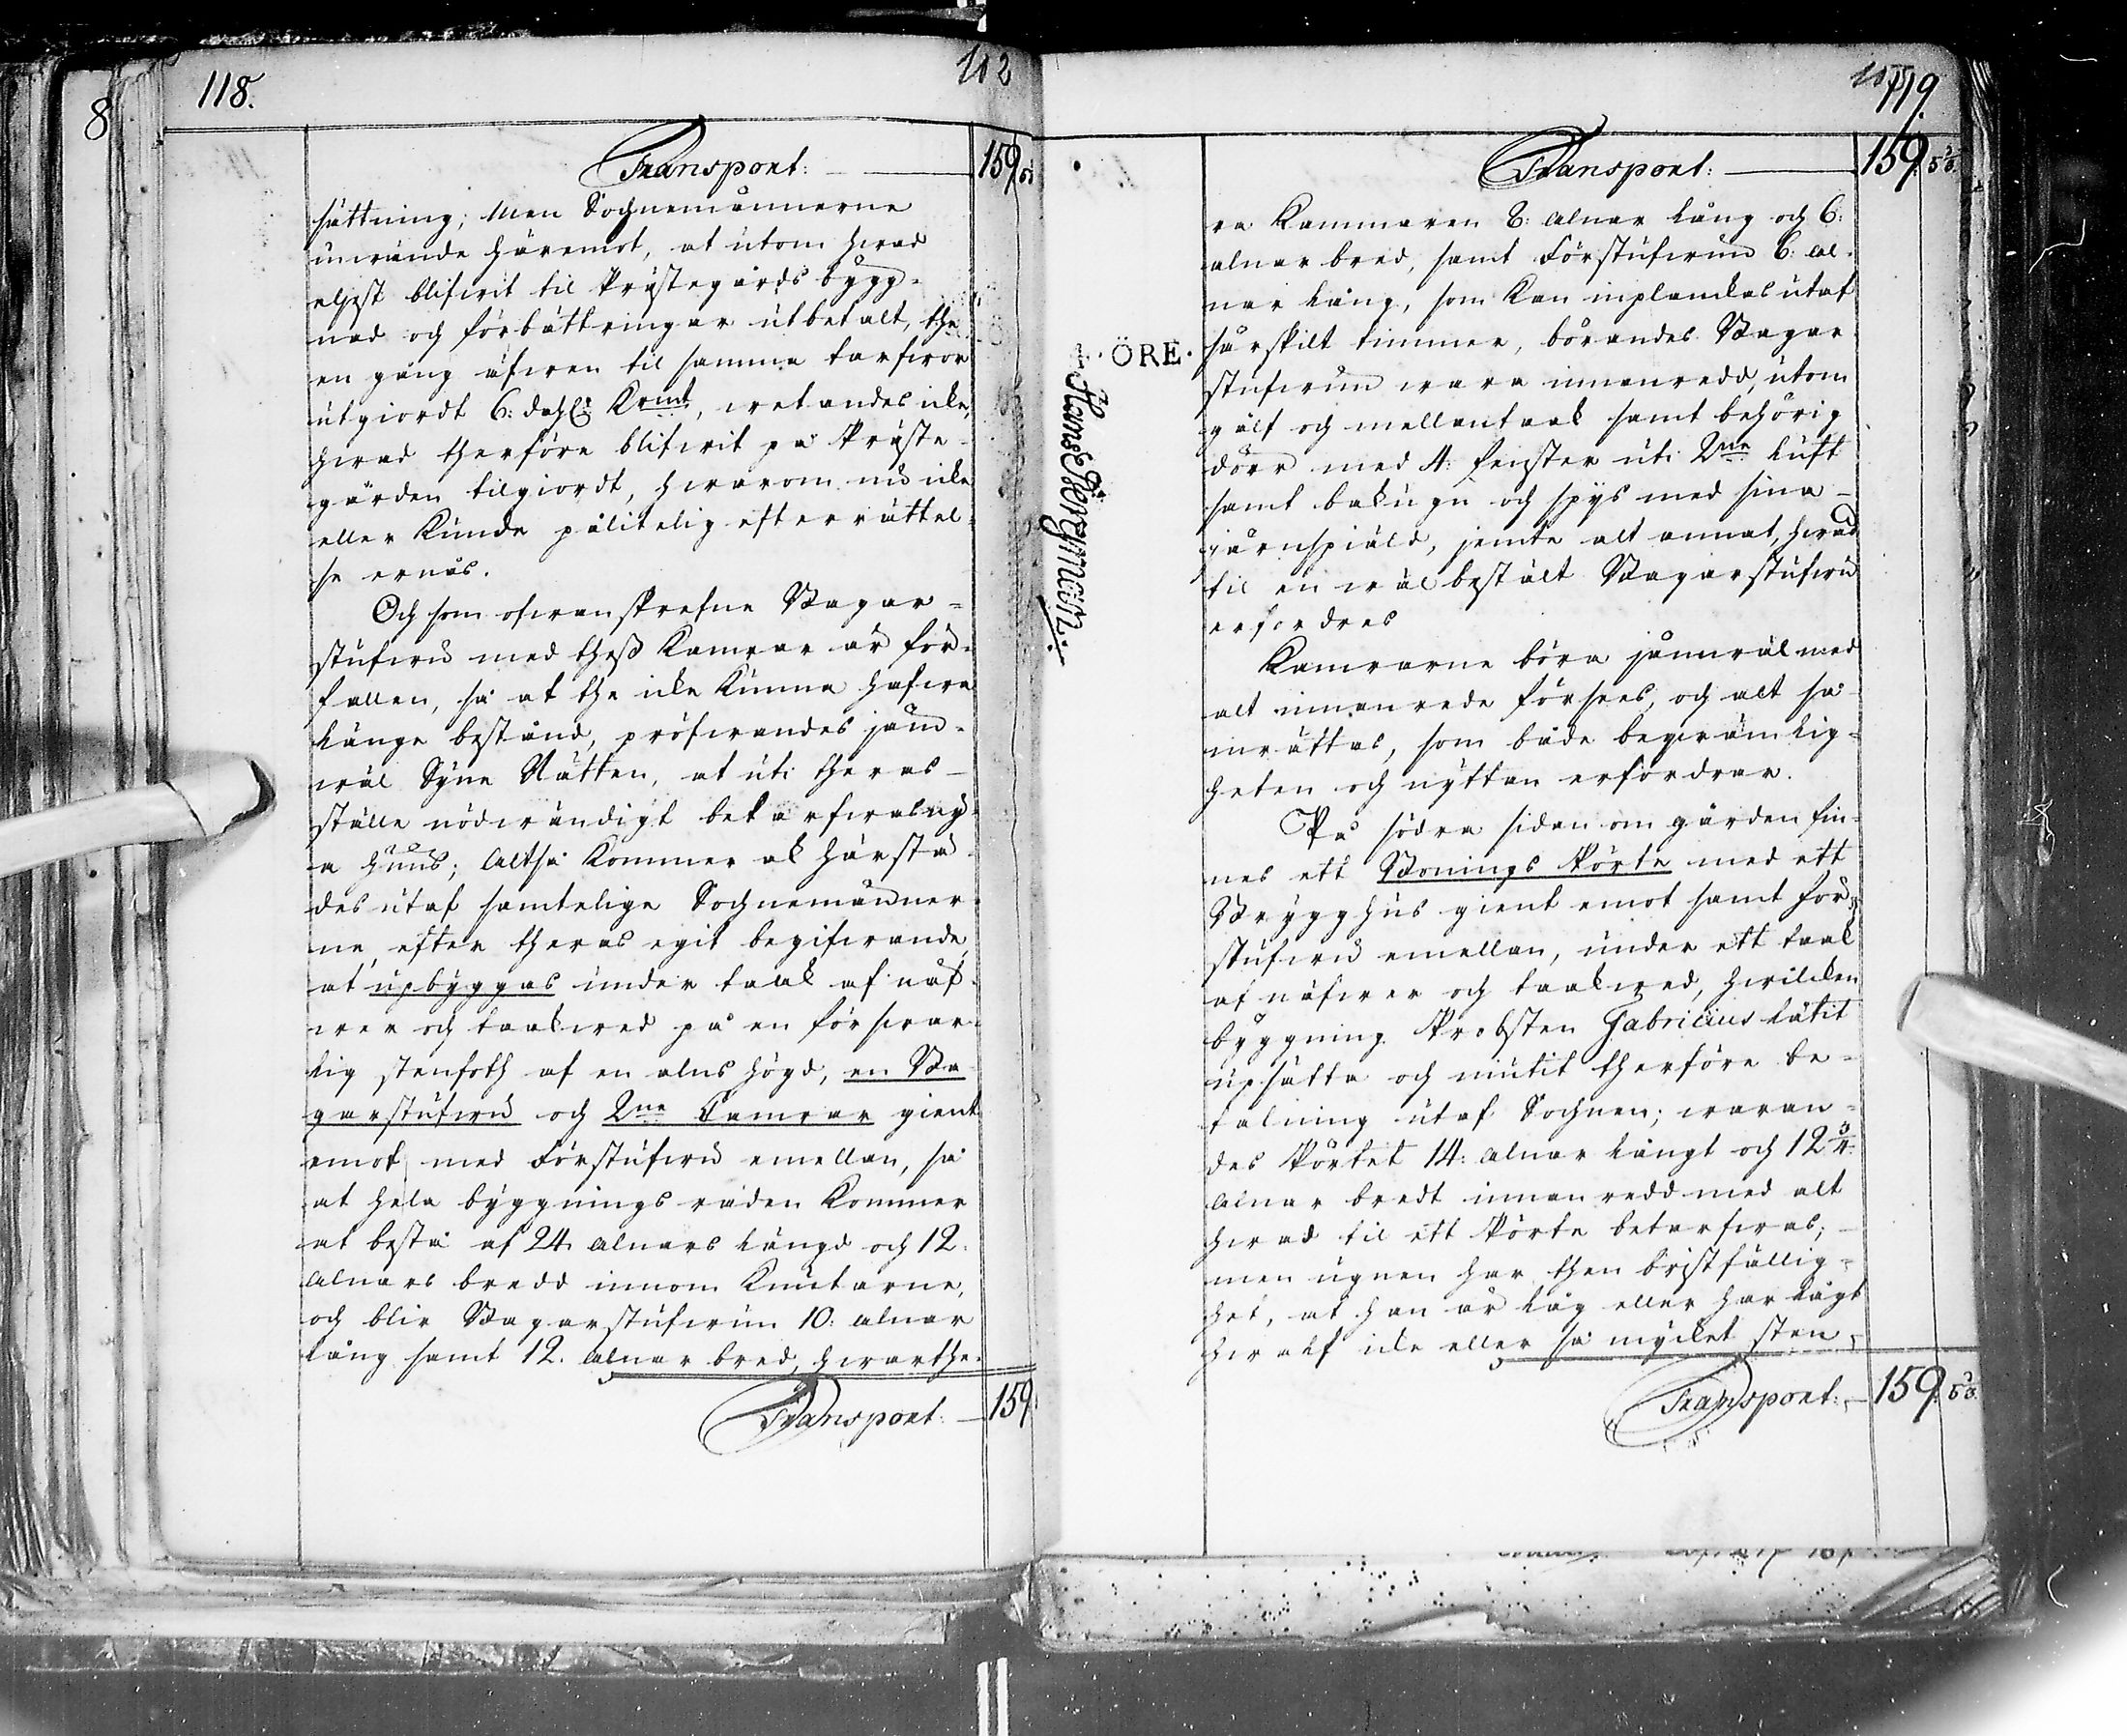 118.
102
8
Transport: 159
sättning; Men Sochnemännerne
inwände häremot, at utom hwad
eljest blifwit til Prästegårds bygg-
nad och förbättringar utbetalt, the
en gång äfwen til samma tarfwor
utgiordt 6: dahl: Kmt, wetandes icke,
hwad therföre blifwit på Präste-
gården tilgiordt, hwarom nu icke
eller kunde pålitelig efterrättel-
se ernås.
Och som ofwanskrefne Bagar-
stufwu med thess Kamrar är för-
fallen, så at the icke kunna hafwa
länge bestånd, pröfwandes jäm-
wäl Syne Rätten, at uti theras
ställe nödwändigt betarfwas ny-
a huus; Altså kommer ock härstä-
des utaf samtelige Sochnemänner-
ne, efter theras egit begifwande,
at upbyggas under taak af näf-
wer och taakwed på en förswar-
lig stenfoth af en alns högd, en Ba-
garstufwu och 2ne Camrar gient
emot med Förstufwu emellan, så
at hela byggnings raden kommer
at bestå af 24 alnars längd och 12.
alnars bredd innom knutarne,
och blir Bagarstufwun 10: alnar
lång samt 12. alnar bred, hwarthe-
Transport: 159
119.
Transport: 159. 5
ÖRE.
Hans Bergman:
ra Kammaren 8: alnar lång och 6:
alnar bred, samt Förstufwun 6: al-
nar lång, som kan inplankas utaf
särskilt timmer, börandes Bagar-
stufwun wara innanredd, utom
gålf och mellantaak samt behörig
dörr med 4: fenster uti 2ne luft
samt bakugn och spys med sina
järnspiäld, jemte alt annat, hwad
til en wäl bestält Bagarstufwu
erfordres
Kamrarne böra jämwäl med
alt innanrede försees, och alt så
inrättas, som både beqwämlig-
heten och nyttan erfordrar.
På södra sidan om gården fin-
nes ett Bonings Pörte med ett
Brygghus gient emot samt för-
stufwu emellan, under ett taak
af näfwer och taakwed, hwilken
byggning Probsten Fabricius låtit
upsätta och niutit therföre be-
talning utaf Sochnen; waran-
des Pörtet 14: alnar långt och 12 3/4
alnar bredt innanredd med alt
hwad til ett Pörte betarfwas;
men ugnen har then bristfällig-
het, at han är låg eller har lågt
hwalf icke eller så mycket sten,
Transport: 159. 5